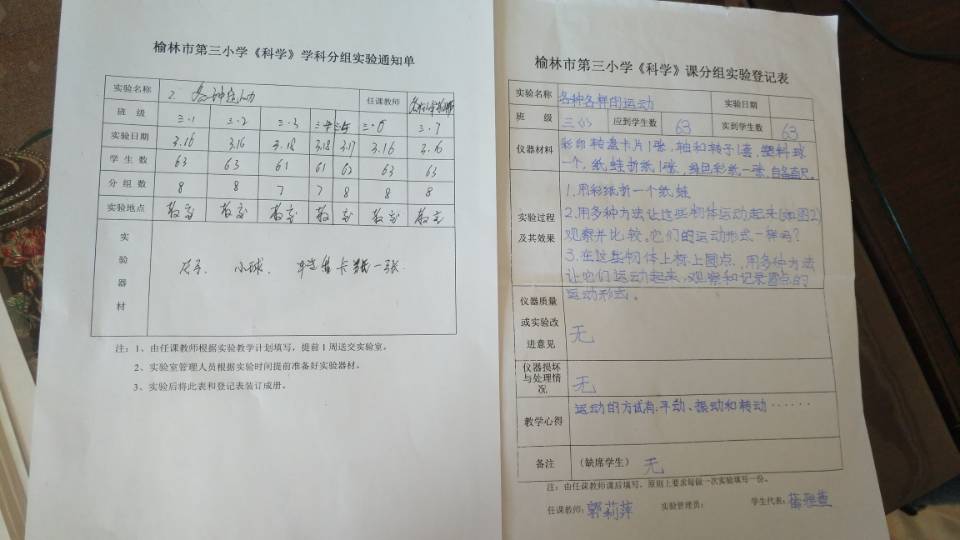 榆林市第三小学《科学》学科分组实验通知单
实验名称 2. 各种运动 任课教师
班 级 三.1 三.2 三.3 三.6 三.7
实验日期 3.16 3.16 3.18 3.18 3.17 3.16 3.16
学 生 数 63 63 61 61 62 63 63
分 组 数 8 8 7 7 8 8 8
实验地点 教室 教室 教室 教室 教室 教室
实验器材 尺子. 小球. 卡纸一张.
注:1、由任课教师根据实验教学计划填写,提前1周送交实验室。
2、实验室管理人员根据实验时间提前准备好实验器材。
3、实验后将此表和登记表装订成册。
榆林市第三小学《科学》课分组实验登记表
实验名称 各种各样的运动 实验日期
班 级 三(1) 应到学生数 63 实到学生数 63
仪器材料 彩印转盘卡片1张,轴和转子1套,塑料球
一个,纸蛙折纸1张,绿色彩纸一张,自备直尺。
实验过程及其效果 1.用彩纸折一个纸蛙
2.用多种方法让这些物体运动起来(如图2)
观察并比较。它们的运动形式一样吗?
3.在这些物体上标上圆点,用多种方法
让它们运动起来,观察和记录圆点的
运动形式。
仪器质量或实验改进意见 无
仪器损坏与处理情况 无
教学心得 运动的方式有平动、振动和转动······
备注 (缺席学生) 无
注:由任课教师课后填写,原则上要求每做一次实验填写一份。
任课教师:郭莉萍 实验管理员: 学生代表: